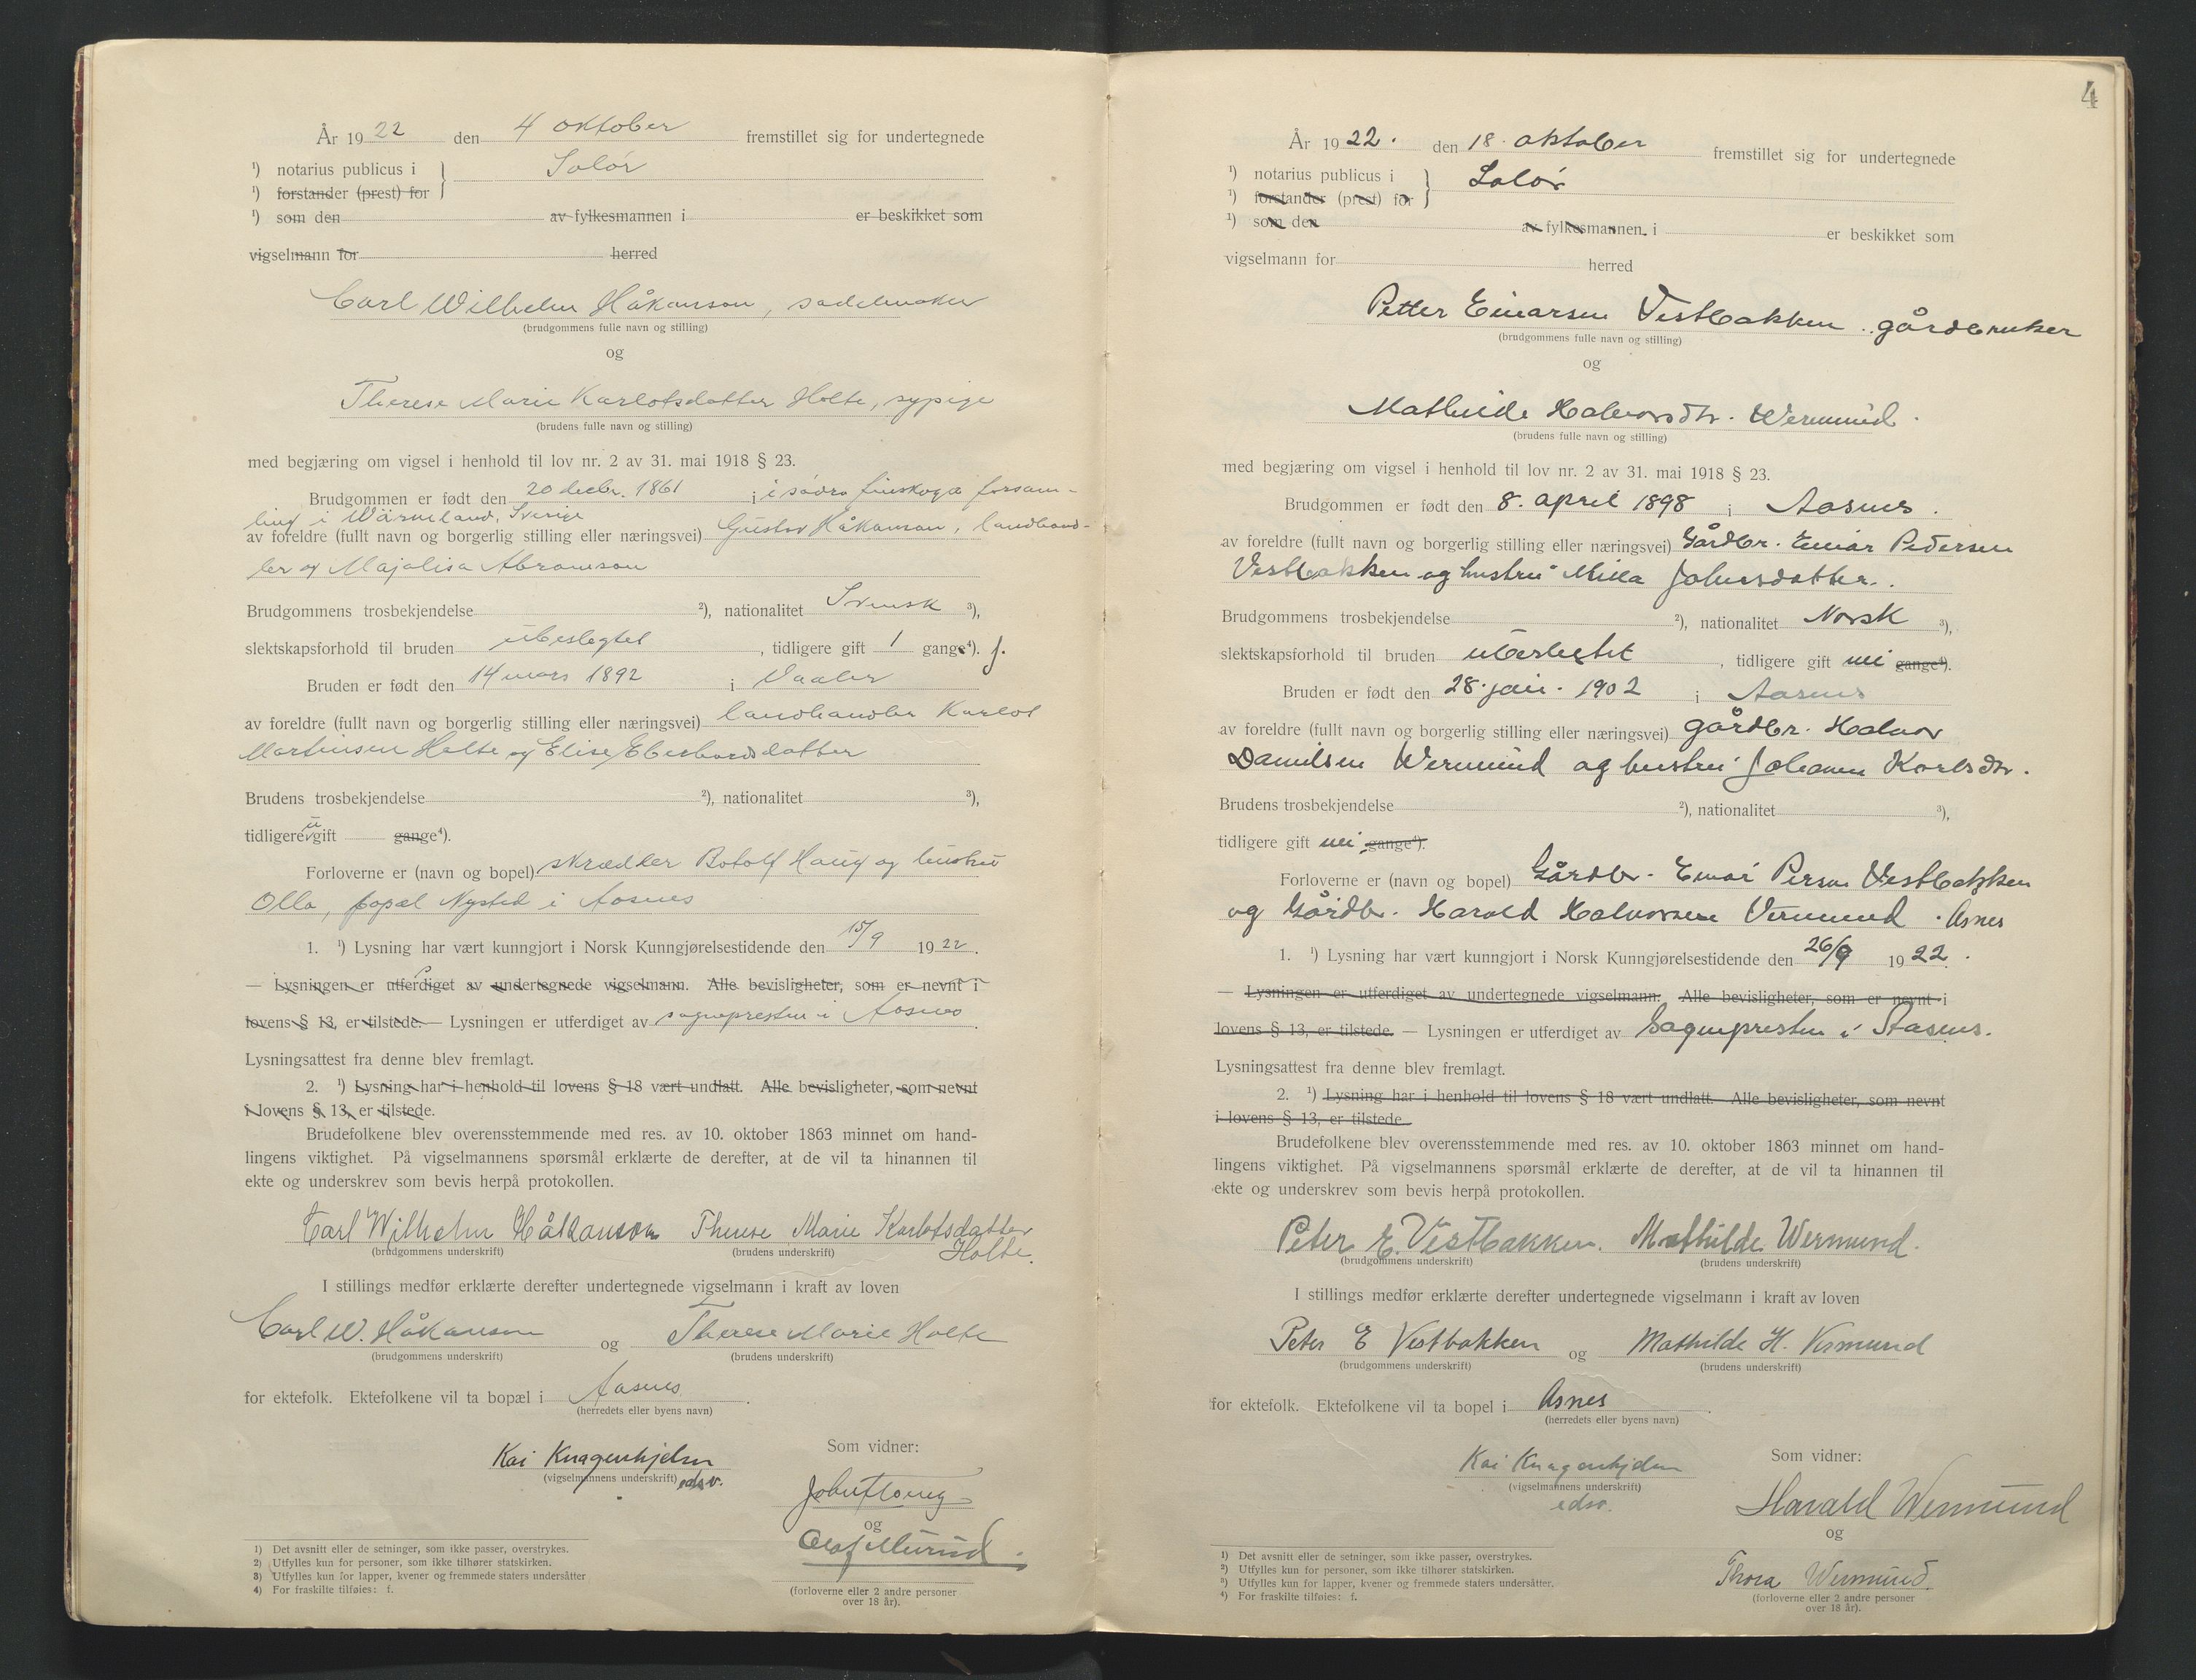 År 1922 den 4 oktober fremstillet sig for undertegnede
¹) notarius publicus i } Solør
¹) forstander (prest) for
¹) som den av fylkesmannen i er beskikket som
vigselmann for herred
Carl Wilhelm Håkanson, sadelmaker
(brudgommens fulle navn og stilling)
og
Therese Marie Karlotsdatter Holte, sypige
(brudens fulle navn og stilling)
med begjæring om vigsel i henhold til lov nr. 2 av 31. mai 1918 § 23.
Brudgommen er født den 20 decbr. 1861 i i södra finskoga forsam-
ling i Wärmeland, Sverige
av foreldre (fullt navn og borgerlig stilling eller næringsvei) Gustav Håkanson, landhand-
ler og Majalisa Abramson
Brudgommens trosbekjendelse ²), nationalitet Svensk ³),
slektskapsforhold til bruden ubeslegtet, tidligere gift 1 gange⁴). f.
Bruden er født den 14 mars 1892 i Vaaler
av foreldre (fullt navn og borgerlig stilling eller næringsvei) landhandler Karlot
Martinsen Holte og Elise Eberhardsdatter
Brudens trosbekjendelse ²), nationalitet ³),
tidligere u gift gange⁴).
Forloverne er (navn og bopel) skrædder Botolf Haug og hustru
Olla, bopæl Nysted i Aasnes
1. ¹) Lysning har vært kunngjort i Norsk Kunngjørelsestidende den 15/9 1922.
— Lysningen er utferdiget av undertegnede vigselmann. Alle bevisligheter, som er nevnt i
lovens § 13, er tilstede. — Lysningen er utferdiget av sognepresten i Aasnes
Lysningsattest fra denne blev fremlagt.
2. ¹) Lysning har i henhold til lovens § 18 vært undlatt. Alle bevisligheter, som nevnt
i lovens § 13, er tilstede.
Brudefolkene blev overensstemmende med res. av 10. oktober 1863 minnet om hand-
lingens viktighet. På vigselmannens spørsmål erklærte de derefter, at de vil ta hinannen til
ekte og underskrev som bevis herpå protokollen.
Carl Wilhelm Håkanson Therese Marie Karlotsdatter
Holte.
(brudgommens underskrift) (brudens underskrift)
I stillings medfør erklærte derefter undertegnede vigselmann i kraft av loven
Carl W. Håkanson og Therese Marie Holte
(brudgommens underskrift) (brudens underskrift)
for ektefolk. Ektefolkene vil ta bopæl i Aasnes.
(herredets eller byens navn)
Som vidner:
Kai Knagenhjelm
(vigselmannens underskrift) edsv.
John Haug
og
Olaf Murud.
(forloverne eller 2 andre personer
over 18 år).
1) Det avsnitt eller de setninger, som ikke passer, overstrykes.
2) Utfylles kun for personer, som ikke tilhører statskirken.
3) Utfylles kun for lapper, kvener og fremmede staters undersåtter
4) For fraskilte tilføies: f.
4
År 1922. den 18. oktober fremstillet sig for undertegnede
¹) notarius publicus i } Solør
¹) forstander (prest) for
¹) som den av fylkesmannen i er beskikket som
vigselmann for herred
Petter Einarsen Vestbakken. gårdbruker
(brudgommens fulle navn og stilling)
og
Mathilde Halvorsdtr. Wermund.
(brudens fulle navn og stilling)
med begjæring om vigsel i henhold til lov nr. 2 av 31. mai 1918 § 23.
Brudgommen er født den 8. april 1898 i Aasnes.
av foreldre (fullt navn og borgerlig stilling eller næringsvei) Gårdbr. Einar Pedersen
Vestbakken og hustru Milla Johnsdatter.
Brudgommens trosbekjendelse ²), nationalitet Norsk ³),
slektskapsforhold til bruden ubeslegtet, tidligere gift nei gange⁴).
Bruden er født den 28. jan. 1902 i Aasnes
av foreldre (fullt navn og borgerlig stilling eller næringsvei) gårdbr. Halvor
Danielsen Wermund og hustru Johanne Karlsdtr.
Brudens trosbekjendelse ²), nationalitet ³),
tidligere gift nei gange⁴).
Forloverne er (navn og bopel) Gårdbr. Einar Persen Vestbakken
og Gårdbr. Harald Halvorsen Vermund. Asnes
1. ¹) Lysning har vært kunngjort i Norsk Kunngjørelsestidende den 26/9 1922.
— Lysningen er utferdiget av undertegnede vigselmann. Alle bevisligheter, som er nevnt i
lovens § 13, er tilstede. — Lysningen er utferdiget av Sognepresten i Aasnes.
Lysningsattest fra denne blev fremlagt.
2. ¹) Lysning har i henhold til lovens § 18 vært undlatt. Alle bevisligheter, som nevnt
i lovens § 13, er tilstede.
Brudefolkene blev overensstemmende med res. av 10. oktober 1863 minnet om hand-
lingens viktighet. På vigselmannens spørsmål erklærte de derefter, at de vil ta hinannen til
ekte og underskrev som bevis herpå protokollen.
Peter E. Vestbakken. Mathilde Wermund.
(brudgommens underskrift) (brudens underskrift)
I stillings medfør erklærte derefter undertegnede vigselmann i kraft av loven
Peter E Vestbakken og Mathilde H. Vermund
(brudgommens underskrift) (brudens underskrift)
for ektefolk. Ektefolkene vil ta bopel i Asnes.
(herredets eller byens navn)
Som vidner:
Kai Knagenhjelm
(vigselmannens underskrift)
edsv.
Harald Wermund
og
Thora Wermund.
(forloverne eller 2 andre personer
over 18 år).
1) Det avsnitt eller de setninger, som ikke passer, overstrykes.
2) Utfylles kun for personer, som ikke tilhører statskirken.
3) Utfylles kun for lapper, kvener og fremmede staters undersåtter.
4) For fraskilte tilføies: f.